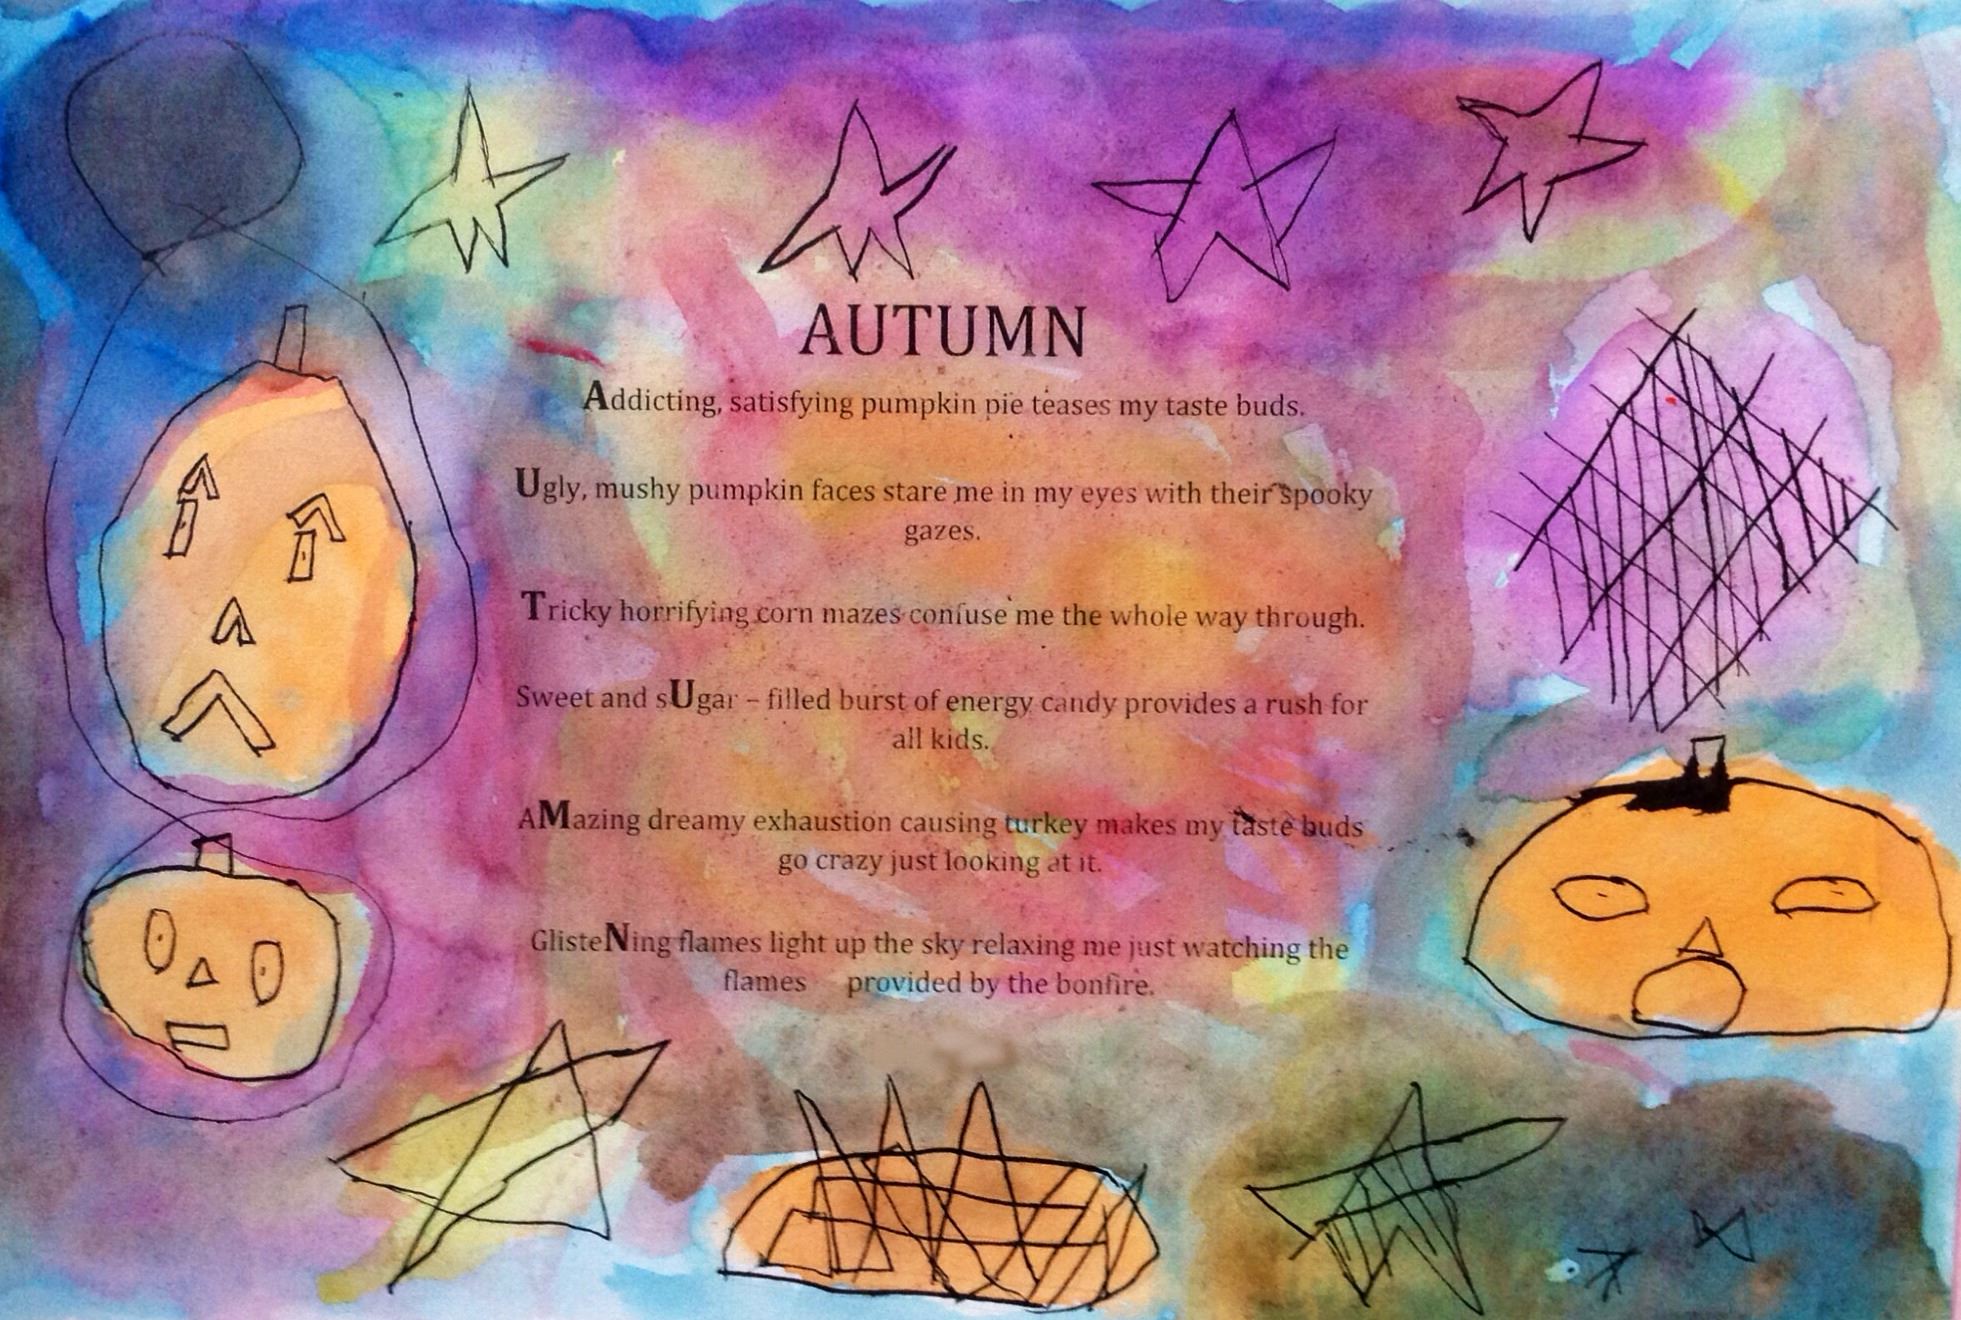 AUTUMN
Addicting, satisfying pumpkin pie teases my taste buds.
Ugly, mushy pumpkin faces stare me in my eyes with their spooky
gazes.
Tricky horrifying corn mazes confuse me the whole way through.
Sweet and sUgar – filled burst of energy candy provides a rush for
all kids.
AMazing dreamy exhaustion causing turkey makes my taste buds
go crazy just looking at it.
GlisteNing flames light up the sky relaxing me just watching the
flames provided by the bonfire.